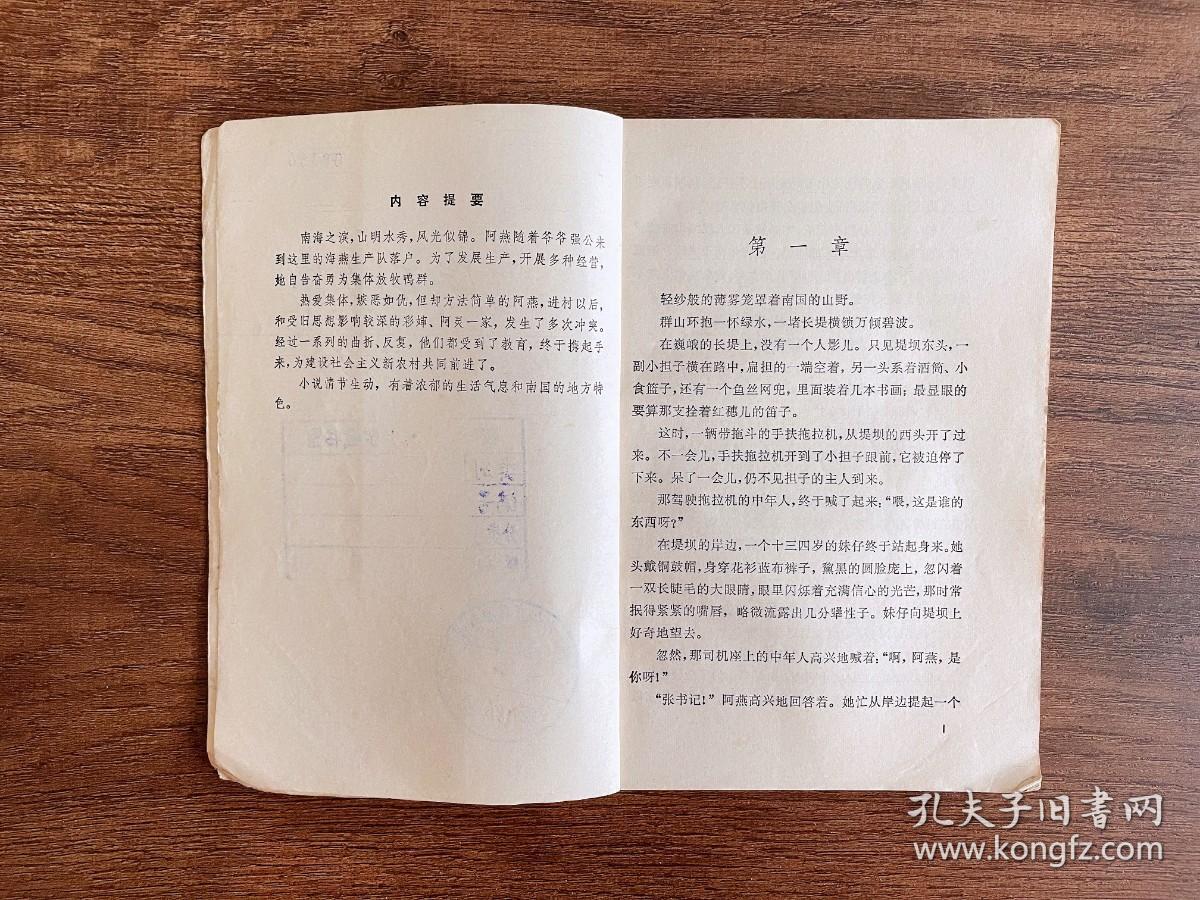 内容提要
南海之滨，山明水秀，风光似锦。阿燕随着爷爷强公来
到这里的海燕生产队落户。为了发展生产，开展多种经营，
她自告奋勇为集体放牧鸭群。
热爱集体，嫉恶如仇，但却方法简单的阿燕，进村以后，
和受旧思想影响较深的彩婶、阿灵一家，发生了多次冲突。
经过一系列的曲折、反复，他们都受到了教育，终于携起手
来，为建设社会主义新农村共同前进了。
小说情节生动，有着浓郁的生活气息和南国的地方特
色。
第一章
轻纱般的薄雾笼罩着南国的山野。
群山环抱一怀绿水，一堵长堤横锁万倾碧波。
在巍峨的长堤上，没有一个人影儿。只见堤坝东头，一
副小担子横在路中，扁担的一端空着，另一头系着酒筒、小
食篮子，还有一个鱼丝网兜，里面装着几本书画；最显眼的
要算那支拴着红穗儿的笛子。
这时，一辆带拖斗的手扶拖拉机，从堤坝的西头开了过
来。不一会儿，手扶拖拉机开到了小担子跟前，它被迫停了
下来。呆了一会儿，仍不见担子的主人到来。
那驾驶拖拉机的中年人，终于喊了起来：“喂，这是谁的
东西呀？”
在堤坝的岸边，一个十三四岁的妹仔终于站起身来。她
头戴铜鼓帽，身穿花衫蓝布裤子，黧黑的圆脸庞上，忽闪着
一双长睫毛的大眼睛，眼里闪烁着充满信心的光芒，那时常
抿得紧紧的嘴唇，略微流露出几分犟性子。妹仔向堤坝上
好奇地望去。
忽然，那司机座上的中年人高兴地喊着：“啊，阿燕，是
你呀！”
“张书记！”阿燕高兴地回答着。她忙从岸边提起一个
1
孔夫子旧书网
www.kongfz.com